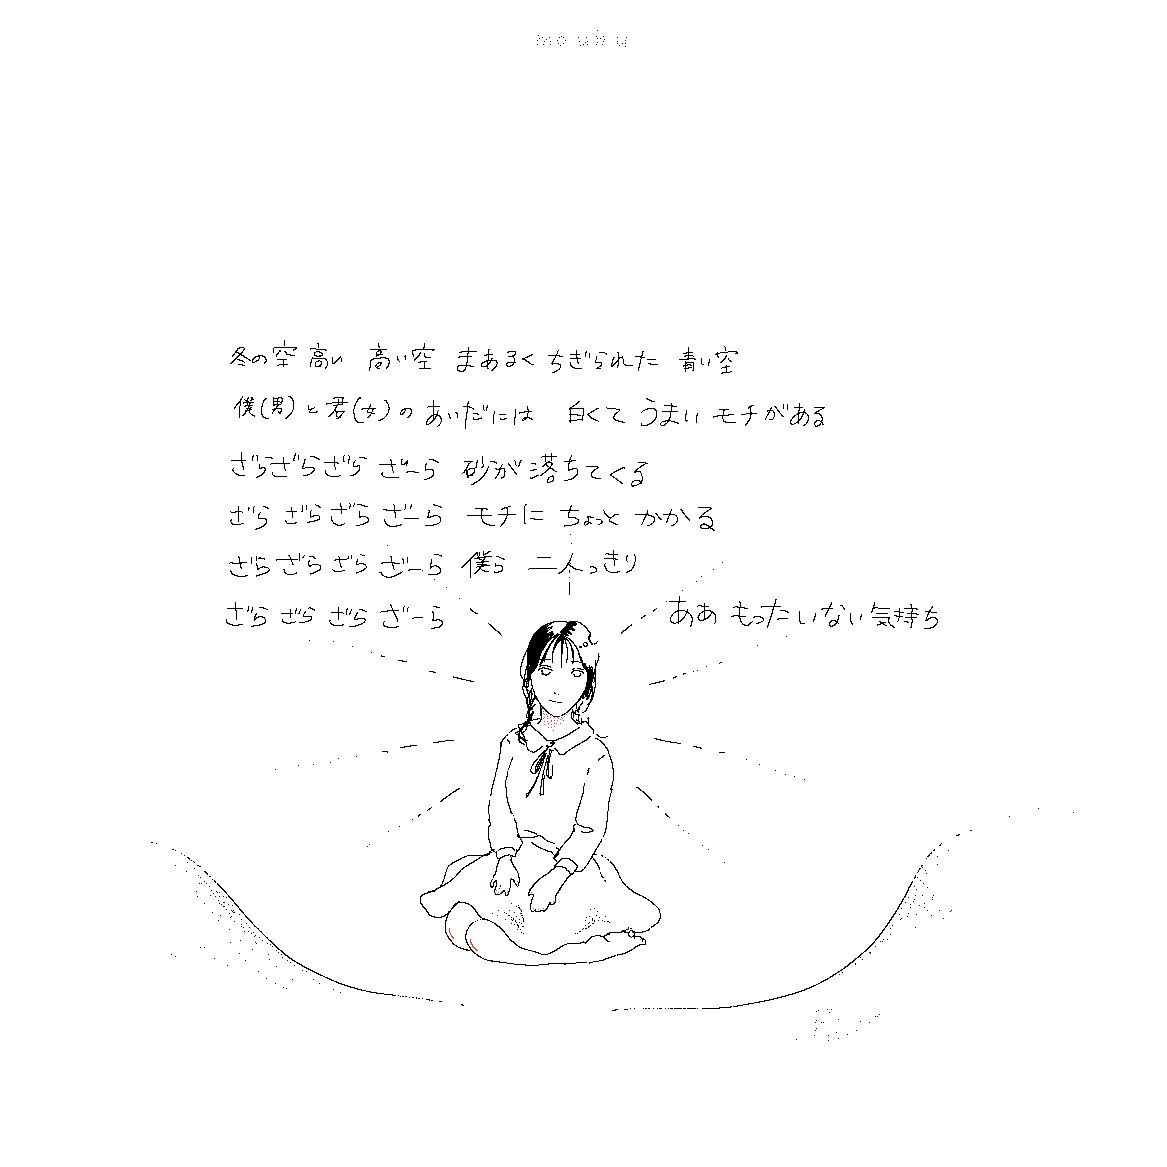 mouhu
冬の空 高い 高い空 まあるく ちぎられた 青い空
僕(男)と君(女)の あいだには 白くて うまい モチがある
ざらざらざら ざーら 砂が 落ちてくる
ざら ざらざら ざーら モチに ちょっと かかる
ざらざら ざら ざーら 僕ら 二人っきり
ざら ざら ざら ざーら ああ もったいない 気持ち